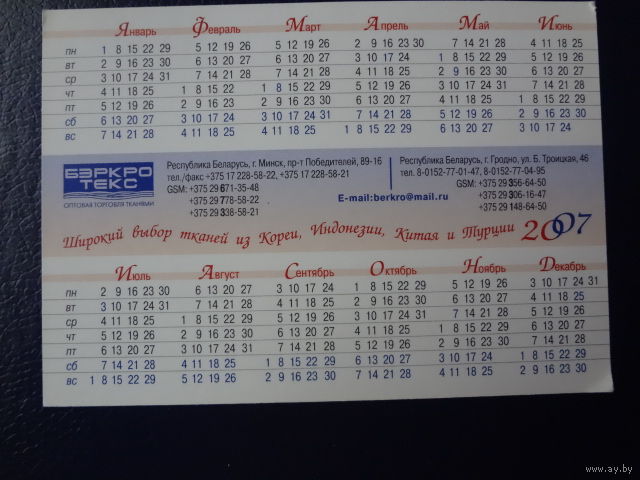 Январь Февраль Март Апрель Май Июнь
пн 1 8 15 22 29 5 12 19 26 5 12 19 26 2 9 16 23 30 7 14 21 28 4 11 18 25
вт 2 9 16 23 30 6 13 20 27 6 13 20 27 3 10 17 24 1 8 15 22 29 5 12 19 26
ср 3 10 17 24 31 7 14 21 28 7 14 21 28 4 11 18 25 2 9 16 23 30 6 13 20 27
чт 4 11 18 25 1 8 15 22 1 8 15 22 29 5 12 19 26 3 10 17 24 31 7 14 21 28
пт 5 12 19 26 2 9 16 23 2 9 16 23 30 6 13 20 27 4 11 18 25 1 8 15 22 29
сб 6 13 20 27 3 10 17 24 3 10 17 24 31 7 14 21 28 5 12 19 26 2 9 16 23 30
вс 7 14 21 28 4 11 18 25 4 11 18 25 1 8 15 22 29 6 13 20 27 3 10 17 24
БЭРКРО
ТЕКС
ОПТОВАЯ ТОРГОВЛЯ ТКАНЯМИ
Республика Беларусь, г. Минск, пр-т Победителей, 89-16
тел./факс +375 17 228-58-22, +375 17 228-58-21
GSM: +375 29 671-35-48
+375 29 778-58-22
+375 29 338-58-21
E-mail:berkro@mail.ru
Республика Беларусь, г. Гродно, ул. Б. Троицкая, 46
тел. 8-0152-77-01-47, 8-0152-77-04-95
GSM: +375 29 356-64-50
+375 29 306-16-47
+375 29 148-64-50
Широкий выбор тканей из Кореи, Индонезии, Китая и Турции 2007
Июль Август Сентябрь Октябрь Ноябрь Декабрь
пн 2 9 16 23 30 6 13 20 27 3 10 17 24 1 8 15 22 29 5 12 19 26 3 10 17 24 31
вт 3 10 17 24 31 7 14 21 28 4 11 18 25 2 9 16 23 30 6 13 20 27 4 11 18 25
ср 4 11 18 25 1 8 15 22 29 5 12 19 26 3 10 17 24 31 7 14 21 28 5 12 19 26
чт 5 12 19 26 2 9 16 23 30 6 13 20 27 4 11 18 25 1 8 15 22 29 6 13 20 27
пт 6 13 20 27 3 10 17 24 31 7 14 21 28 5 12 19 26 2 9 16 23 30 7 14 21 28
сб 7 14 21 28 4 11 18 25 1 8 15 22 29 6 13 20 27 3 10 17 24 1 8 15 22 29
вс 1 8 15 22 29 5 12 19 26 2 9 16 23 30 7 14 21 28 4 11 18 25 2 9 16 23 30
www.ay.by